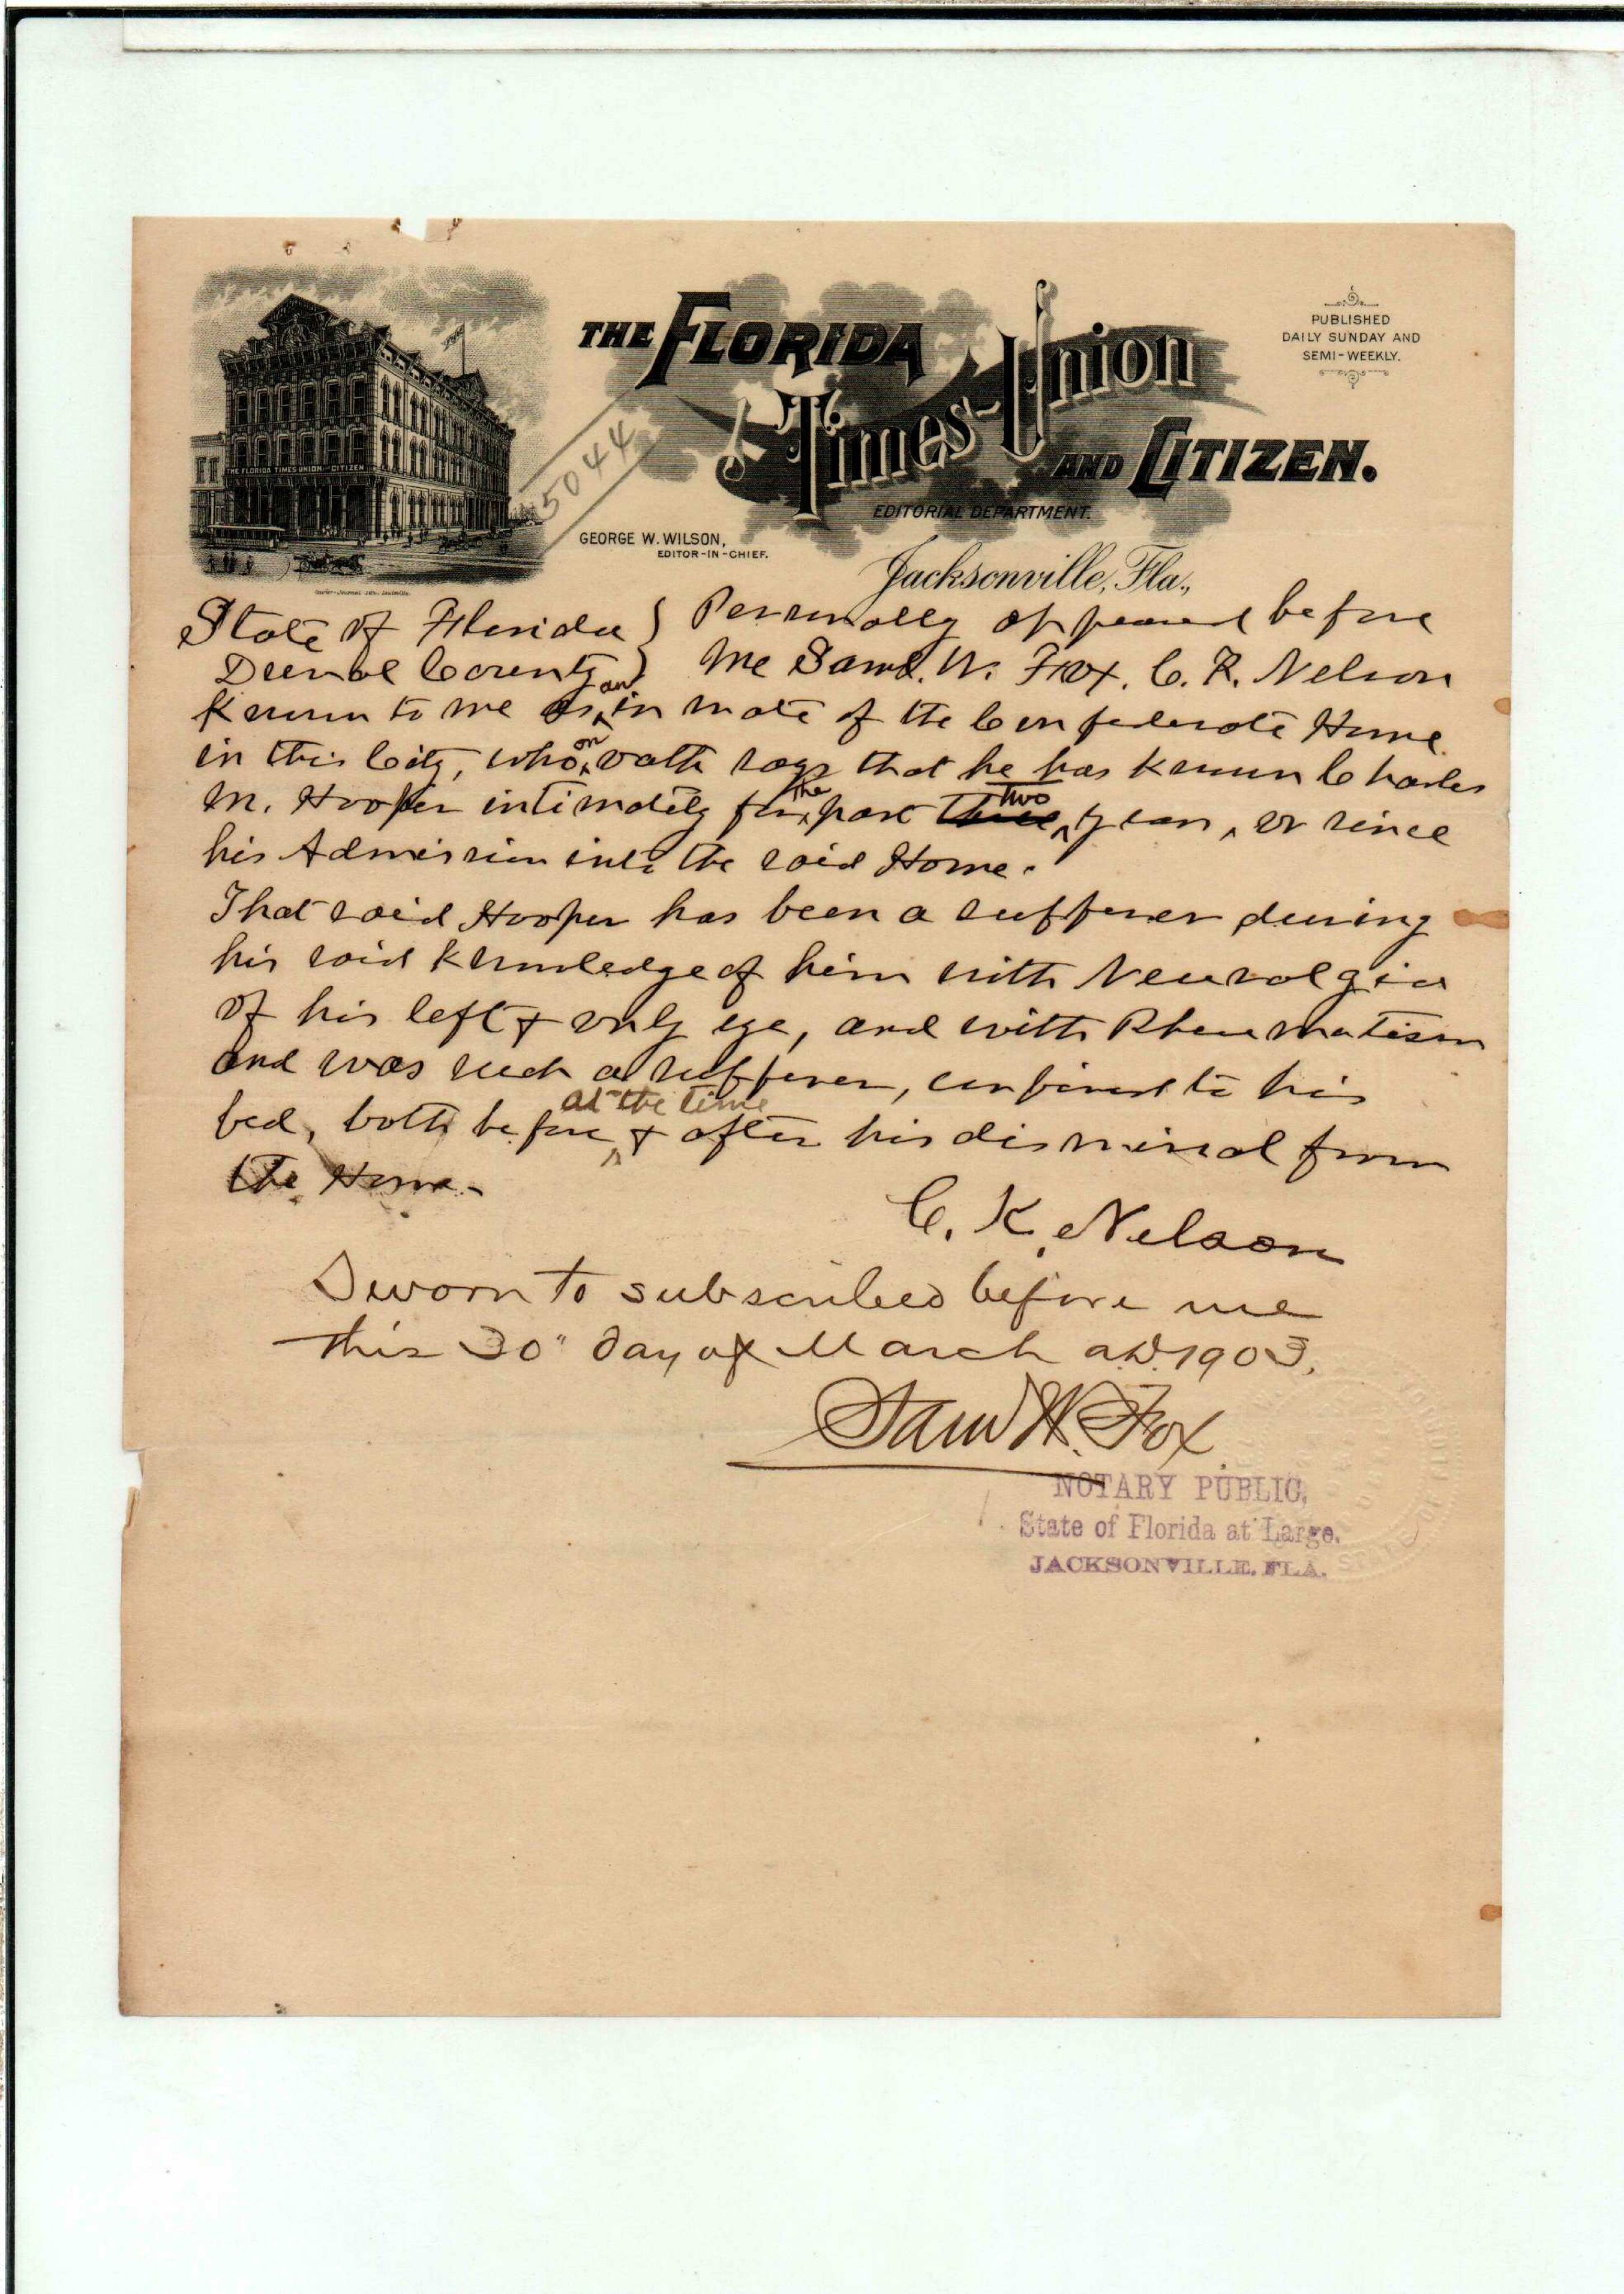 THE FLORIDA
Times-Union
AND CITIZEN.
PUBLISHED
DAILY SUNDAY AND
SEMI-WEEKLY.
THE FLORIDA TIMES UNION AND CITIZEN
5044
EDITORIAL DEPARTMENT.
GEORGE W. WILSON,
EDITOR-IN-CHIEF.
Jacksonville, Fla.,
State of Florida } Personally appeared before
Duval County } me Saml. W. Fox, C. K. Nelson
Known to me as an inmate of the Confederate Home
in this City, who on oath says that he has known Charles
M. Hooper intimately for the past two years, or since
his Admission into the said Home.
That said Hooper has been a sufferer during
his said knowledge of him with Neuralgia
of his left & only eye, and with Rheumatism
and was such a sufferer, confined to his
bed, both before at the time & after his dismissal from
the Home.
C. K. Nelson
Sworn to subscribed before me
this 30" day of March A.D. 1903.
Saml W. Fox
NOTARY PUBLIC,
State of Florida at Large.
JACKSONVILLE, FLA.